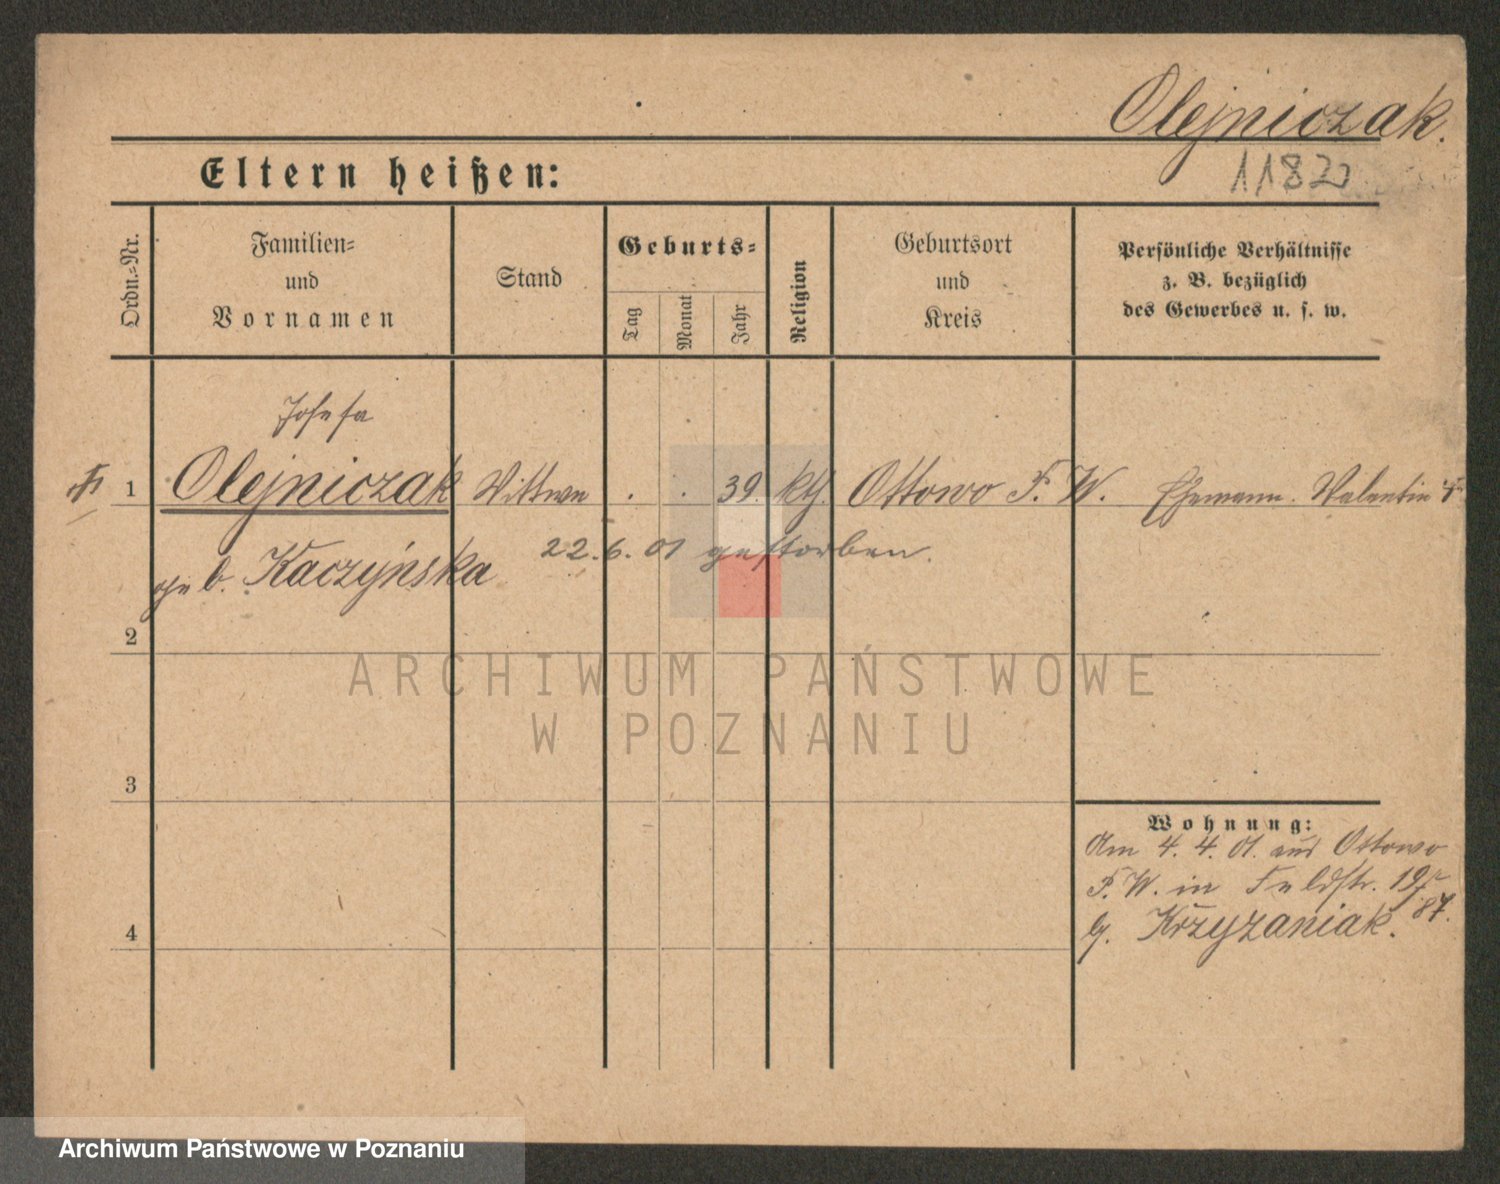 Olejniczak.
1182
Eltern heißen:
Ordn.-Nr.
Familien-
und
Vornamen
Stand
Geburts-
Tag
Monat
Jahr
Religion
Geburtsort
und
Kreis
Persönliche Verhältnisse
z. B. bezüglich
des Gewerbes u. s. w.
Josefa
1 Olejniczak Wittwe . . 39. kth. Ottowo P. W. Ehemann. Valentin †
geb. Kaczyńska 22.6.01 gestorben.
2
ARCHIWUM PAŃSTWOWE
W POZNANIU
3
Wohnung:
Am 4. 4. 01. aus Ottowo
P. W. in Feldstr. 19
87.
b. Krzyzaniak.
4
Archiwum Państwowe w Poznaniu